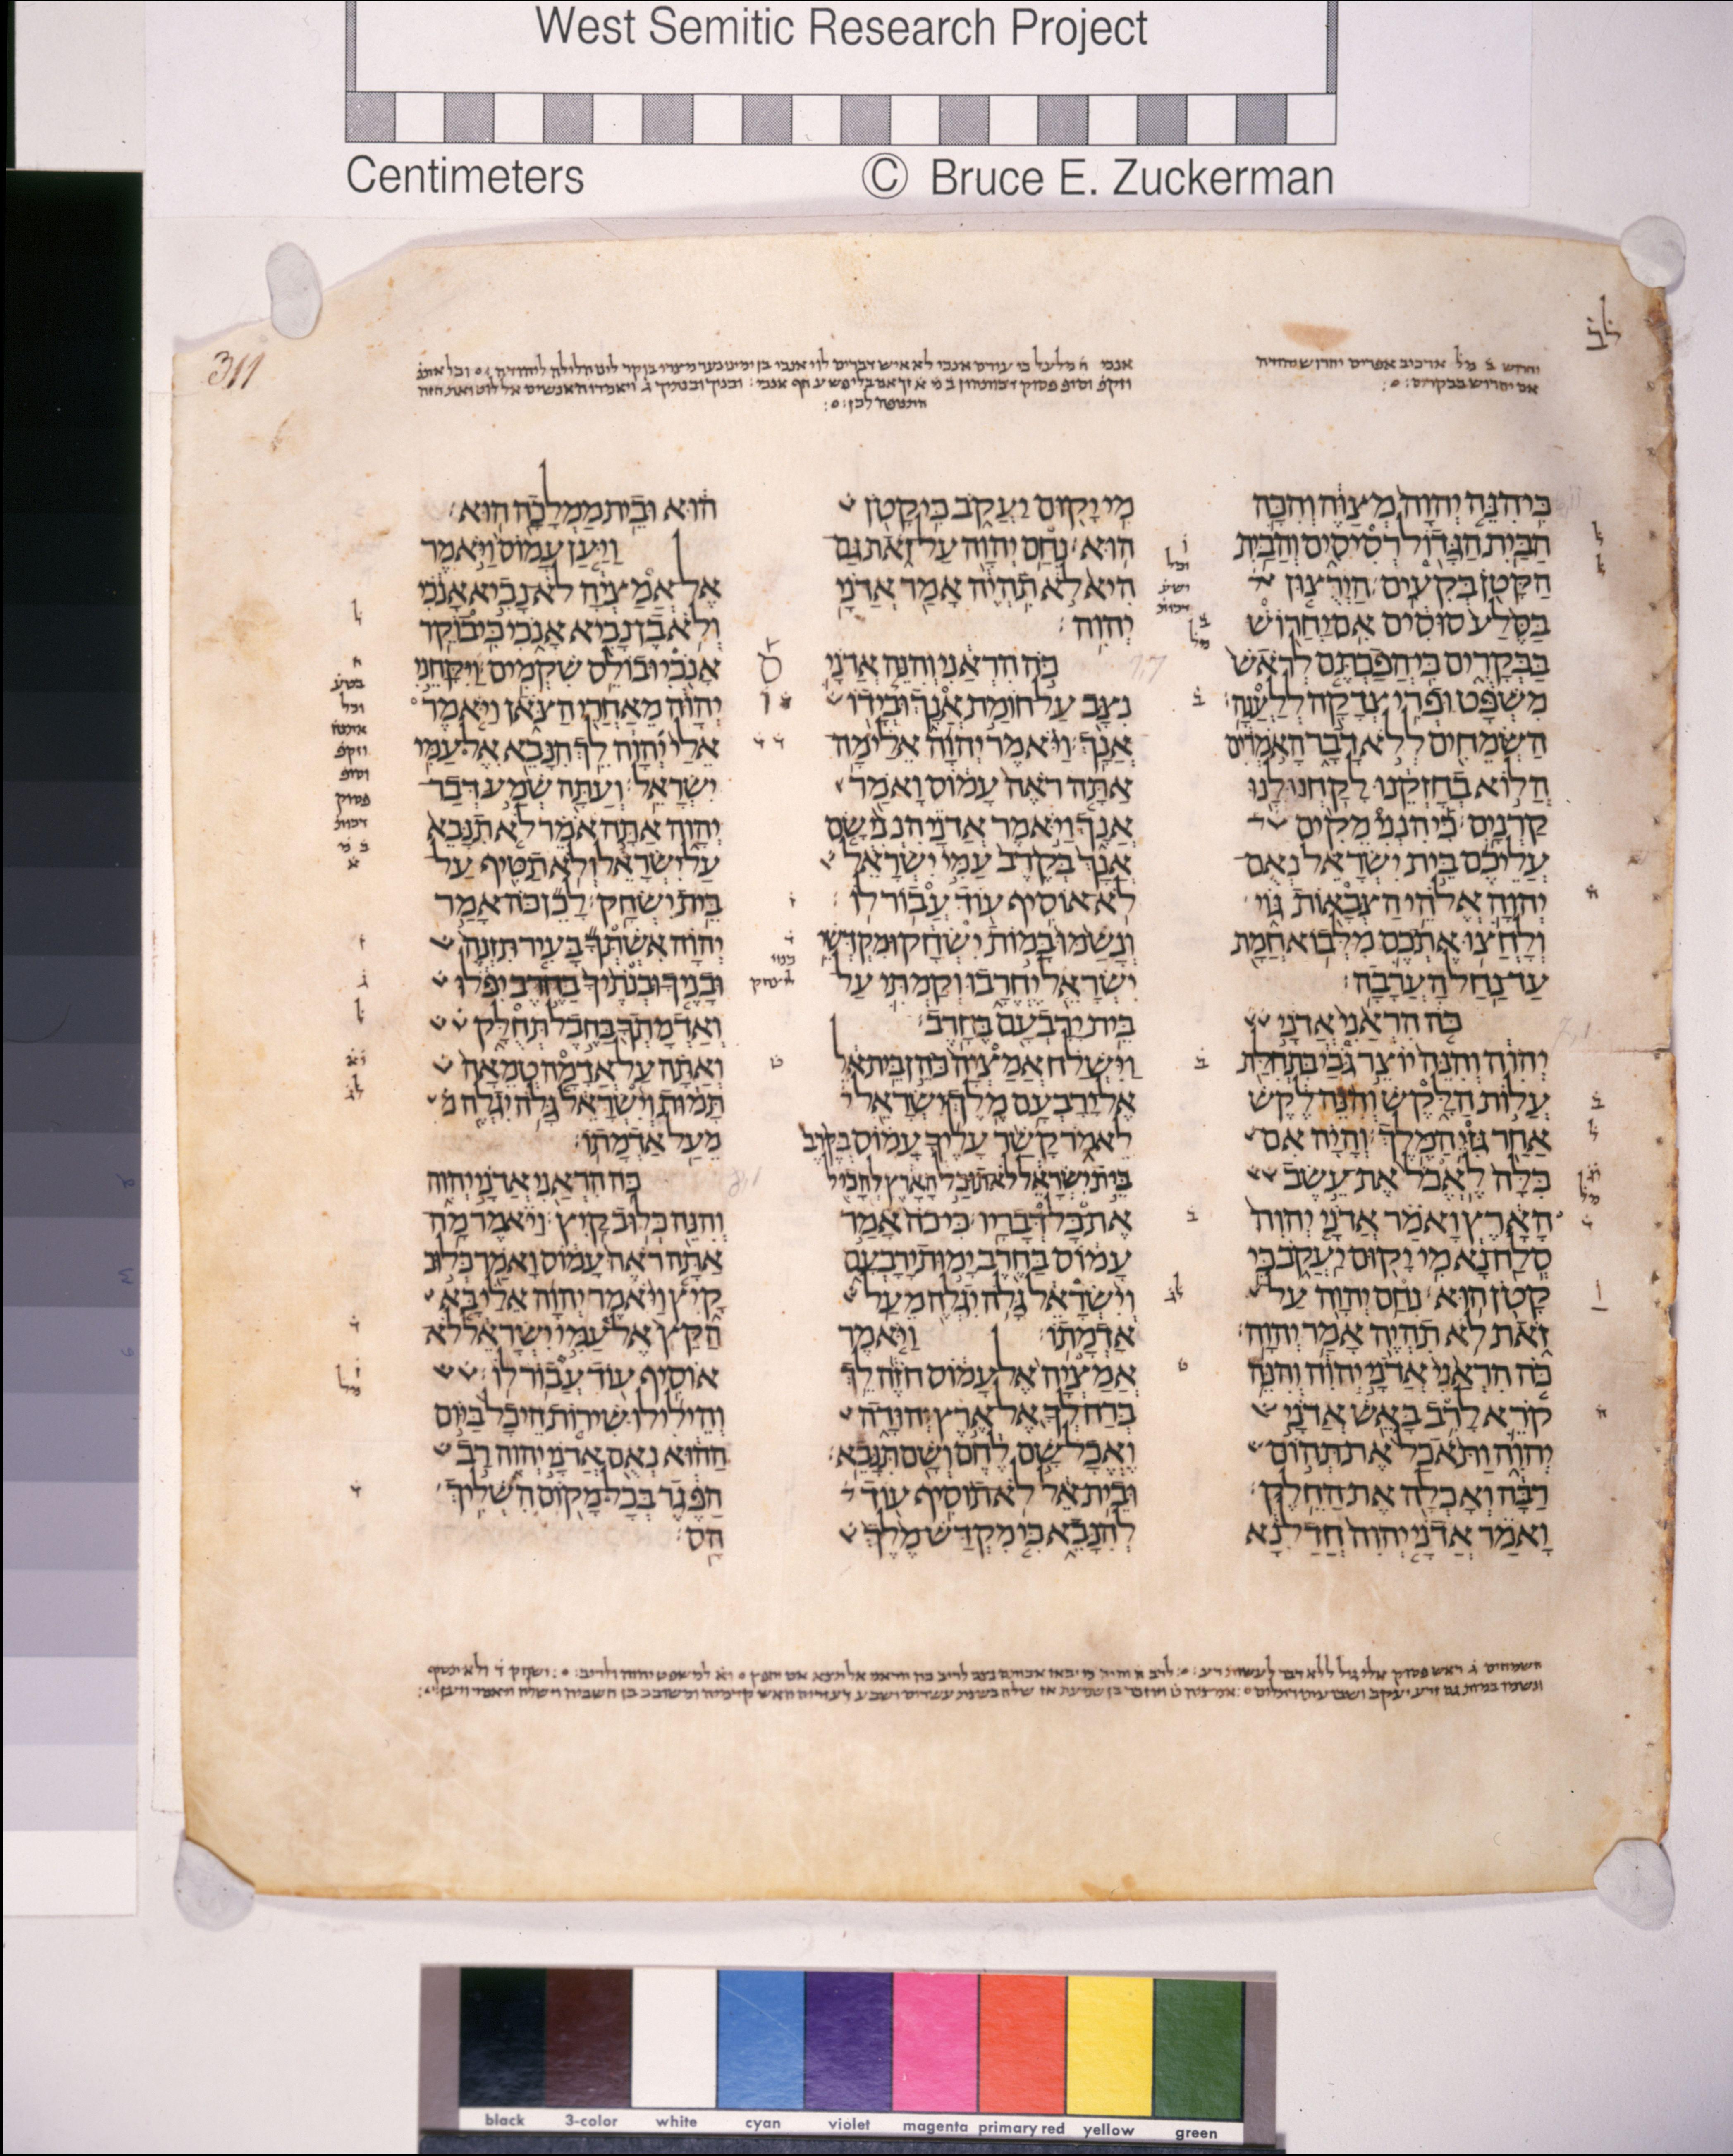 West Semitic Research Project
Centimeters © Bruce E. Zuckerman
311
לב
אם יחרוש בבקרים
כִּֽי־הִנֵּ֤ה יְהוָה֙ מְצַוֶּ֔ה וְהִכָּ֛ה
הַבַּ֥יִת הַגָּד֖וֹל רְסִיסִ֑ים וְהַבַּ֥יִת
הַקָּטֹ֖ן בְּקִעִֽים׃ הַיְרֻצ֤וּן
בַּסֶּ֙לַע֙ סוּסִ֔ים אִֽם־יַחֲר֖וֹשׁ
בַּבְּקָרִ֑ים כִּֽי־הֲפַכְתֶּ֤ם לְרֹאשׁ֙
מִשְׁפָּ֔ט וּפְרִ֥י צְדָקָ֖ה לְלַעֲנָֽה׃
הַשְּׂמֵחִ֖ים לְלֹ֣א דָבָ֑ר הָאֹ֣מְרִ֔ים
הֲל֣וֹא בְחָזְקֵ֔נוּ לָקַ֥חְנוּ לָ֖נוּ
קַרְנָֽיִם׃ כִּ֡י הִנְנִי֩ מֵקִ֨ים
עֲלֵיכֶ֜ם בֵּ֣ית יִשְׂרָאֵ֗ל נְאֻם
יְהוָ֛ה אֱלֹהֵ֥י הַצְּבָא֖וֹת גּ֑וֹי
וְלָחֲצ֥וּ אֶתְכֶ֛ם מִלְּב֥וֹא חֲמָ֖ת
עַד־נַ֥חַל הָעֲרָבָֽה׃
כֹּ֤ה הִרְאַ֙נִי֙ אֲדֹנָ֣י
יְהוִ֔ה וְהִנֵּה֙ יוֹצֵ֣ר גֹּבַ֔י בִּתְחִלַּ֖ת
עֲל֣וֹת הַלָּ֑קֶשׁ וְהִ֨נֵּה־לֶ֔קֶשׁ
אַחַ֖ר גִּזֵּ֥י הַמֶּֽלֶךְ׃ וְהָיָ֗ה אִם
כִּלָּה֙ לֶֽאֱכוֹל֙ אֶת־עֵ֣שֶׂב
הָאָ֔רֶץ וָאֹמַ֗ר אֲדֹנָ֤י יְהוִה֙
סְֽלַֽח־נָ֔א מִ֥י יָק֖וּם יַֽעֲקֹ֑ב כִּ֥י
קָטֹ֖ן הֽוּא׃ נִחַ֥ם יְהוָ֖ה עַל
זֹ֑את לֹ֥א תִהְיֶ֖ה אָמַ֥ר יְהוָֽה׃
כֹּ֤ה הִרְאַ֙נִי֙ אֲדֹנָ֣י יְהוִ֔ה וְהִנֵּ֥ה
קֹרֵ֛א לָרִ֥ב בָּאֵ֖שׁ אֲדֹנָ֣י
יְהוִ֑ה וַתֹּ֙אכַל֙ אֶת־תְּה֣וֹם
רַבָּ֔ה וְאָכְלָ֖ה אֶת־הַחֵֽלֶק׃
וָאֹמַ֗ר אֲדֹנָ֤י יְהוִה֙ חֲדַל־נָ֔א
מִ֥י יָק֖וּם יַעֲקֹ֑ב כִּ֥י קָטֹ֖ן
הֽוּא׃ נִחַ֥ם יְהוָ֖ה עַל־זֹ֑את גַּם
הִיא֙ לֹ֣א תִֽהְיֶ֔ה אָמַ֖ר אֲדֹנָ֥י
יְהוִֽה׃
כֹּ֣ה הִרְאַ֔נִי וְהִנֵּ֧ה אֲדֹנָ֛י
נִצָּ֖ב עַל־חוֹמַ֣ת אֲנָ֑ךְ וּבְיָד֖וֹ
אֲנָֽךְ׃ וַיֹּ֨אמֶר יְהוָ֜ה אֵלַ֗י מָֽה
אַתָּ֤ה רֹאֶה֙ עָמ֔וֹס וָאֹמַ֖ר
אֲנָ֑ךְ וַיֹּ֣אמֶר אֲדֹנָ֗י הִנְנִ֨י שָׂ֤ם
אֲנָךְ֙ בְּקֶ֙רֶב֙ עַמִּ֣י יִשְׂרָאֵ֔ל
לֹֽא־אוֹסִ֥יף ע֖וֹד עֲב֥וֹר לֽוֹ׃
וְנָשַׁ֙מּוּ֙ בָּמ֣וֹת יִשְׂחָ֔ק וּמִקְדְּשֵׁ֥י
יִשְׂרָאֵ֖ל יֶחֱרָ֑בוּ וְקַמְתִּ֛י עַל
בֵּ֥ית יָרָבְעָ֖ם בֶּחָֽרֶב׃
וַיִּשְׁלַ֗ח אֲמַצְיָה֙ כֹּהֵ֣ן בֵּֽית־אֵ֔ל
אֶל־יָרָבְעָ֥ם מֶֽלֶךְ־יִשְׂרָאֵ֖ל
לֵאמֹ֑ר קָשַׁ֨ר עָלֶ֜יךָ עָמ֗וֹס בְּקֶ֙רֶב֙
בֵּ֣ית יִשְׂרָאֵ֔ל לֹא־תוּכַ֣ל הָאָ֔רֶץ לְהָכִ֖יל
אֶת־כָּל־דְּבָרָֽיו׃ כִּי־כֹה֙ אָמַ֣ר
עָמ֔וֹס בַּחֶ֖רֶב יָמ֣וּת יָרָבְעָ֑ם
וְיִ֨שְׂרָאֵ֔ל גָּלֹ֥ה יִגְלֶ֖ה מֵעַ֥ל
אַדְמָתֽוֹ׃ וַיֹּ֤אמֶר
אֲמַצְיָה֙ אֶל־עָמ֔וֹס חֹזֶ֕ה לֵ֥ךְ
בְּרַח־לְךָ֖ אֶל־אֶ֣רֶץ יְהוּדָ֑ה
וֶאֱכָל־שָׁ֣ם לֶ֔חֶם וְשָׁ֖ם תִּנָּבֵֽא׃
וּבֵֽית־אֵ֔ל לֹֽא־תוֹסִ֥יף ע֖וֹד
לְהִנָּבֵ֑א כִּ֤י מִקְדַּשׁ־מֶ֙לֶךְ֙
ה֔וּא וּבֵ֥ית מַמְלָכָ֖ה הֽוּא׃
וַיַּ֤עַן עָמוֹס֙ וַיֹּ֣אמֶר
אֶל־אֲמַצְיָ֔ה לֹא־נָבִ֣יא אָנֹ֔כִי
וְלֹ֥א בֶן־נָבִ֖יא אָנֹ֑כִי כִּֽי־בוֹקֵ֥ר
אָנֹ֖כִי וּבוֹלֵ֥ס שִׁקְמִֽים׃ וַיִּקָּחֵ֣נִי
יְהוָ֔ה מֵאַחֲרֵ֖י הַצֹּ֑אן וַיֹּ֤אמֶר
אֵלַי֙ יְהוָ֔ה לֵ֥ךְ הִנָּבֵ֖א אֶל־עַמִּ֥י
יִשְׂרָאֵֽל׃ וְעַתָּ֖ה שְׁמַ֣ע דְּבַר
יְהוָ֑ה אַתָּ֣ה אֹמֵ֗ר לֹ֤א תִנָּבֵא֙
עַל־יִשְׂרָאֵ֔ל וְלֹ֥א תַטִּ֖יף עַל
בֵּ֥ית יִשְׂחָֽק׃ לָכֵ֞ן כֹּה־אָמַ֣ר
יְהוָ֗ה אִשְׁתְּךָ֞ בָּעִ֤יר תִּזְנֶה֙
וּבָנֶ֤יךָ וּבְנֹתֶ֙יךָ֙ בַּחֶ֣רֶב יִפֹּ֔לוּ
וְאַדְמָתְךָ֖ בַּחֶ֣בֶל תְּחֻלָּ֑ק
וְאַתָּ֗ה עַל־אֲדָמָ֤ה טְמֵאָה֙
תָּמ֔וּת וְיִ֨שְׂרָאֵ֔ל גָּלֹ֥ה יִגְלֶ֖ה
מֵעַ֥ל אַדְמָתֽוֹ׃
כֹּ֥ה הִרְאַ֖נִי אֲדֹנָ֣י יְהוִ֑ה
וְהִנֵּ֖ה כְּל֥וּב קָֽיִץ׃ וַיֹּ֗אמֶר מָֽה
אַתָּ֤ה רֹאֶה֙ עָמ֔וֹס וָאֹמַ֖ר כְּל֣וּב
קָ֑יִץ וַיֹּ֨אמֶר יְהוָ֜ה אֵלַ֗י בָּ֤א
הַקֵּץ֙ אֶל־עַמִּ֣י יִשְׂרָאֵ֔ל לֹא
אוֹסִ֥יף ע֖וֹד עֲב֥וֹר לֽוֹ׃
וְהֵילִ֜ילוּ שִׁיר֤וֹת הֵיכָל֙ בַּיּ֣וֹם
הַה֔וּא נְאֻ֖ם אֲדֹנָ֣י יְהוִ֑ה רַ֣ב
הַפֶּ֔גֶר בְּכָל־מָק֖וֹם הִשְׁלִ֥יךְ
הָֽס׃
black 3-color white cyan violet magenta primary red yellow green